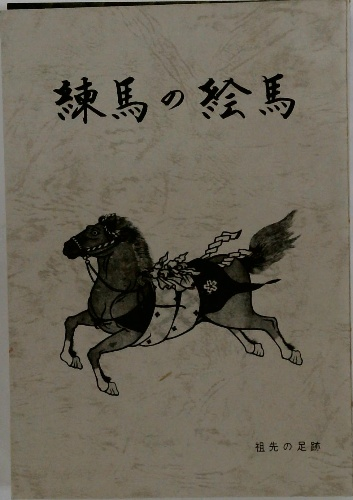 練馬の絵馬
祖先の足跡